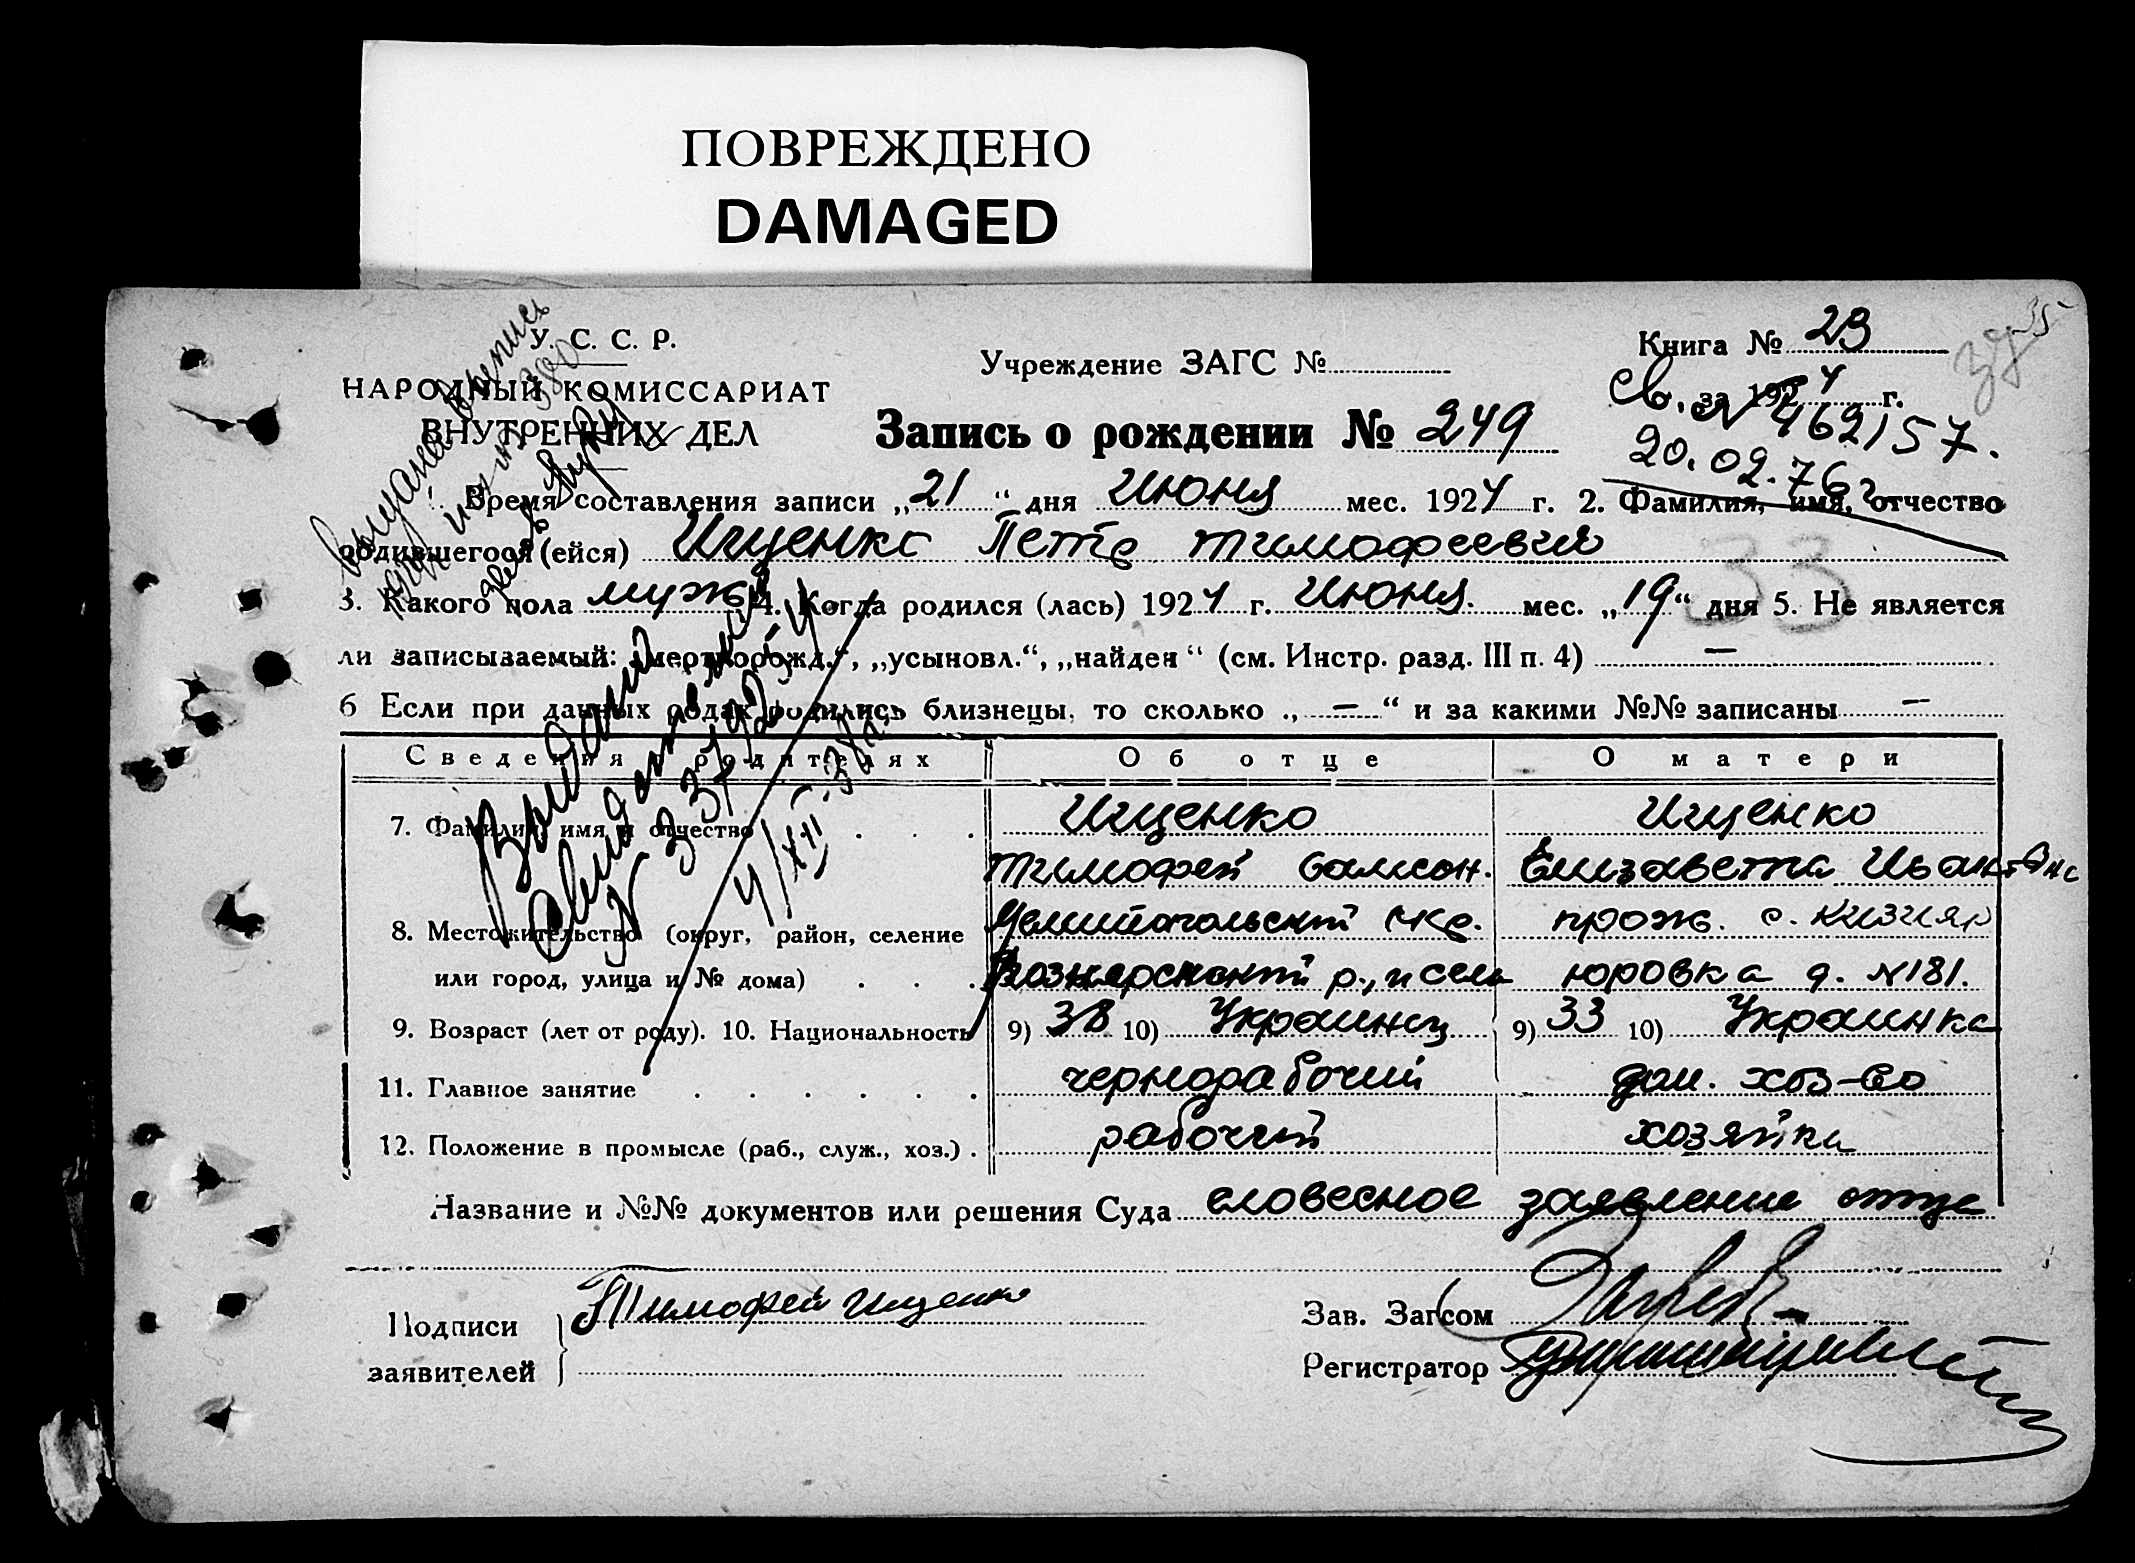 ПОВРЕЖДЕНО
DAMAGED
У. С. С. Р.
НАРОДНЫЙ КОМИССАРИАТ
ВНУТРЕННИХ ДЕЛ
Учреждение ЗАГС №
Книга № 23
за 1924 г.
35
Запись о рождении № 249
св. № 462157.
20.02.76
Время составления записи „21“ дня Июня мес. 1924 г. 2. Фамилия, имя, отчество
родившегося (ейся) Ищенко Петр Тимофеевич
33
3. Какого пола мужс 4. Когда родился (лась) 1924 г. Июня. мес. „19“ дня 5. Не является
ли записываемый: „мертворожд.“, „усыновл.“, „найден“ (см. Инстр. разд. III п. 4) —
6 Если при данных родах родились близнецы, то сколько „—“ и за какими №№ записаны —
Сведения о родителях Об отце О матери
7. Фамилия, имя и отчество Ищенко Ищенко
Тимофей Самсон. Елизавета Ивановна
8. Местожительство (округ, район, селение Мелитопольский окр. прож. с. Кизияр
или город, улица и № дома) р., и село юровка д. №181.
9. Возраст (лет от роду). 10. Национальность 9) 38 10) Украинец 9) 33 10) Украинка
11. Главное занятие чернорабочий дом. хоз-во
12. Положение в промысле (раб., служ., хоз.) рабочий хозяйка
Название и №№ документов или решения Суда словесное заявление отца
Подписи
заявителей
Тимофей Ищенко
Зав. Загсом
Регистратор
выдана выпись
Выданий